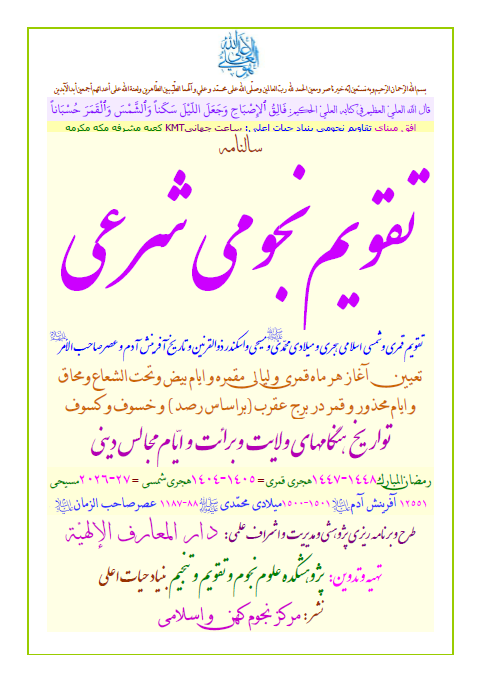 بسم الله الرحمان الرحیم وبه نستعین إنه خیر ناصر ومعین الحمد لله ربّ العالمین وصلّی الله علی محمّد وعلیّ وآلهما الطّیّبین الطّاهرین ولعنة الله علی أعدائهم أجمعین أبد الآبدین
قال الله العليّ العظیم في کتابه العليّ الحکیم: فَالِقُ ٱلۡإِصۡبَاحِ وَجَعَلَ اللَّیۡلَ سَکَناً وَٱلشَّمۡسَ وَٱلۡقَمَرَ حُسۡبَاناً
افق مبنای تقاویم نجومی بنیاد حیات اعلی: ساعت جهانیKMT کعبه مشرفه مکه مکرمه
سالنامه
تقویم نجومی شرعی
تقویم قمری و شمسی اسلامی هجری و میلادی محمّدی ﷺ و مسیحی و اسکندر ذوالقرنین و تاریخ آفرینش آدم و عصر صاحب الأمر
تعیین آغاز هر ماه قمری و لیالی مقمره و ایام بیض و تحت الشعاع و محاق
و ایام محذور و قمر در برج عقرب (براساس رصد) و خسوف و کسوف
تواریخ هنگامهای ولایت و برائت و ایّام مجالس دینی
رمضان المبارك ۱۴۴۸-۱۴۴۷هجری قمری= ۱۴۰۵-۱۴۰۴هجری شمسی = ۲۷-۲۰۲۶مسیحی
۱۲۵۵۱ آفرینش آدم ۱۵۰۱-۱۵۰۰میلادی محمّدی ﷺ ۸۸-۱۱۸۷ عصر صاحب الزمان
طرح و برنامه ریزی پژوهشی و مدیریت و اشراف علمی: دار المعارف الإلهیّة
تهیه و تدوین: پژوهشکده علوم نجوم و تقویم و تنجیم بنیاد حیات اعلی
نشر: مرکز نجوم کهن و اسلامی